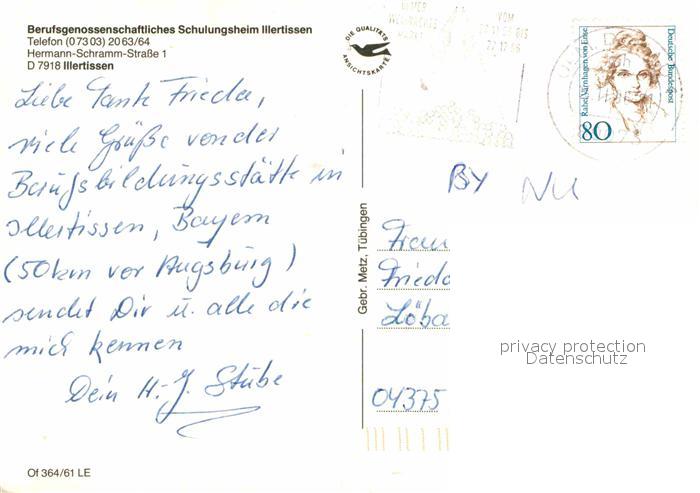 Berufsgenossenschaftliches Schulungsheim Illertissen
Telefon (0 73 03) 20 63/64
Hermann-Schramm-Straße 1
D 7918 Illertissen
Liebe Tante Frieda,
viele Grüße von der
Berufsbildungsstätte in
Illertissen, Bayern
(50km vor Augsburg)
sendet Dir u. alle die
mich kennen
Dein H.-J. Stübe
Of 364/61 LE
DIE QUALITÄTS
ANSICHTSKARTE
Gebr. Metz, Tübingen
ULMER
WEIHNACHTS
MARKT
VOM
BIS
Rahel Varnhagen von Ense
Deutsche Bundespost
80
BY NU
Frau
Frieda
Löba
04375
privacy protection
Datenschutz